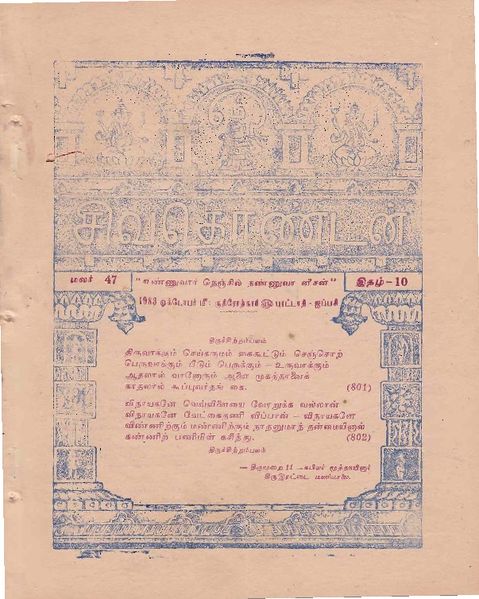 சிவதொண்டன்
மலர் 47
"எண்ணுவார் நெஞ்சில் நண்ணுவா னீசன்"
இதழ்-10
1983 ஒக்டோபர் மீ ருதிரோத்காரி ௵ புரட்டாதி - ஐப்பசி
திருச்சிற்றம்பலம்
திருவாக்கும் செய்கருமம் கைகூட்டும் செஞ்சொற்
பெருவாக்கும் பீடும் பெருக்கும் — உருவாக்கும்
ஆதலால் வானோரும் ஆனை முகத்தானைக்
காதலால் கூப்புவர்தங் கை. (801)
விநாயகனே வெவ்வினையை வேரறுக்க வல்லான்
விநாயகனே வேட்கைதணி விப்பான் — விநாயகனே
விண்ணிற்கும் மண்ணிற்கும் நாதனுமாந் தன்மையினால்
கண்ணிற் பணிமின் கசிந்து. (802)
திருச்சிற்றம்பலம்
— திருமுறை 11 —கபிலர் மூத்தநாயனார்
திருஇரட்டை மணிமாலை.